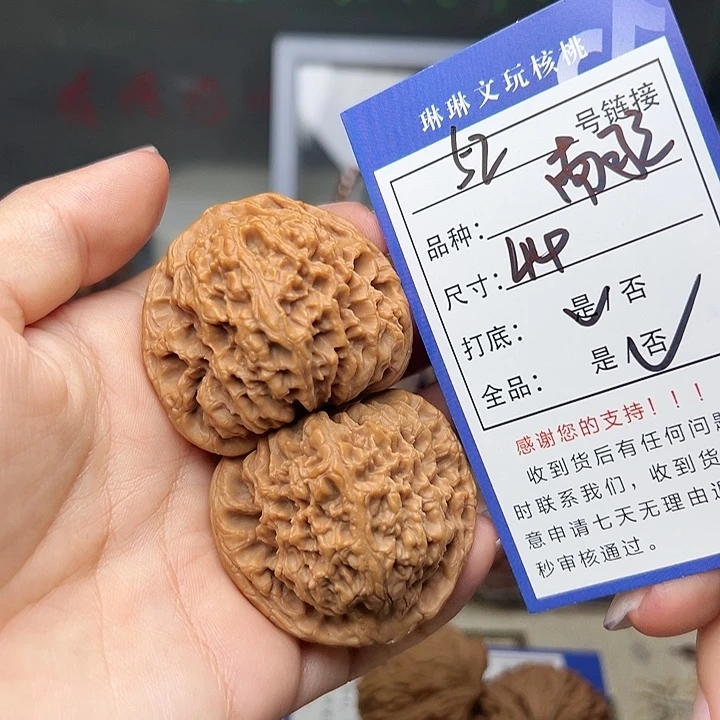 琳琳文玩核桃
52 号链接
品种: 南冰
尺寸: 44
打底: 是 否
全品: 是 否
感谢您的支持!!!
收到货后有任何问题
时联系我们，收到货
意申请七天无理由退
秒审核通过。